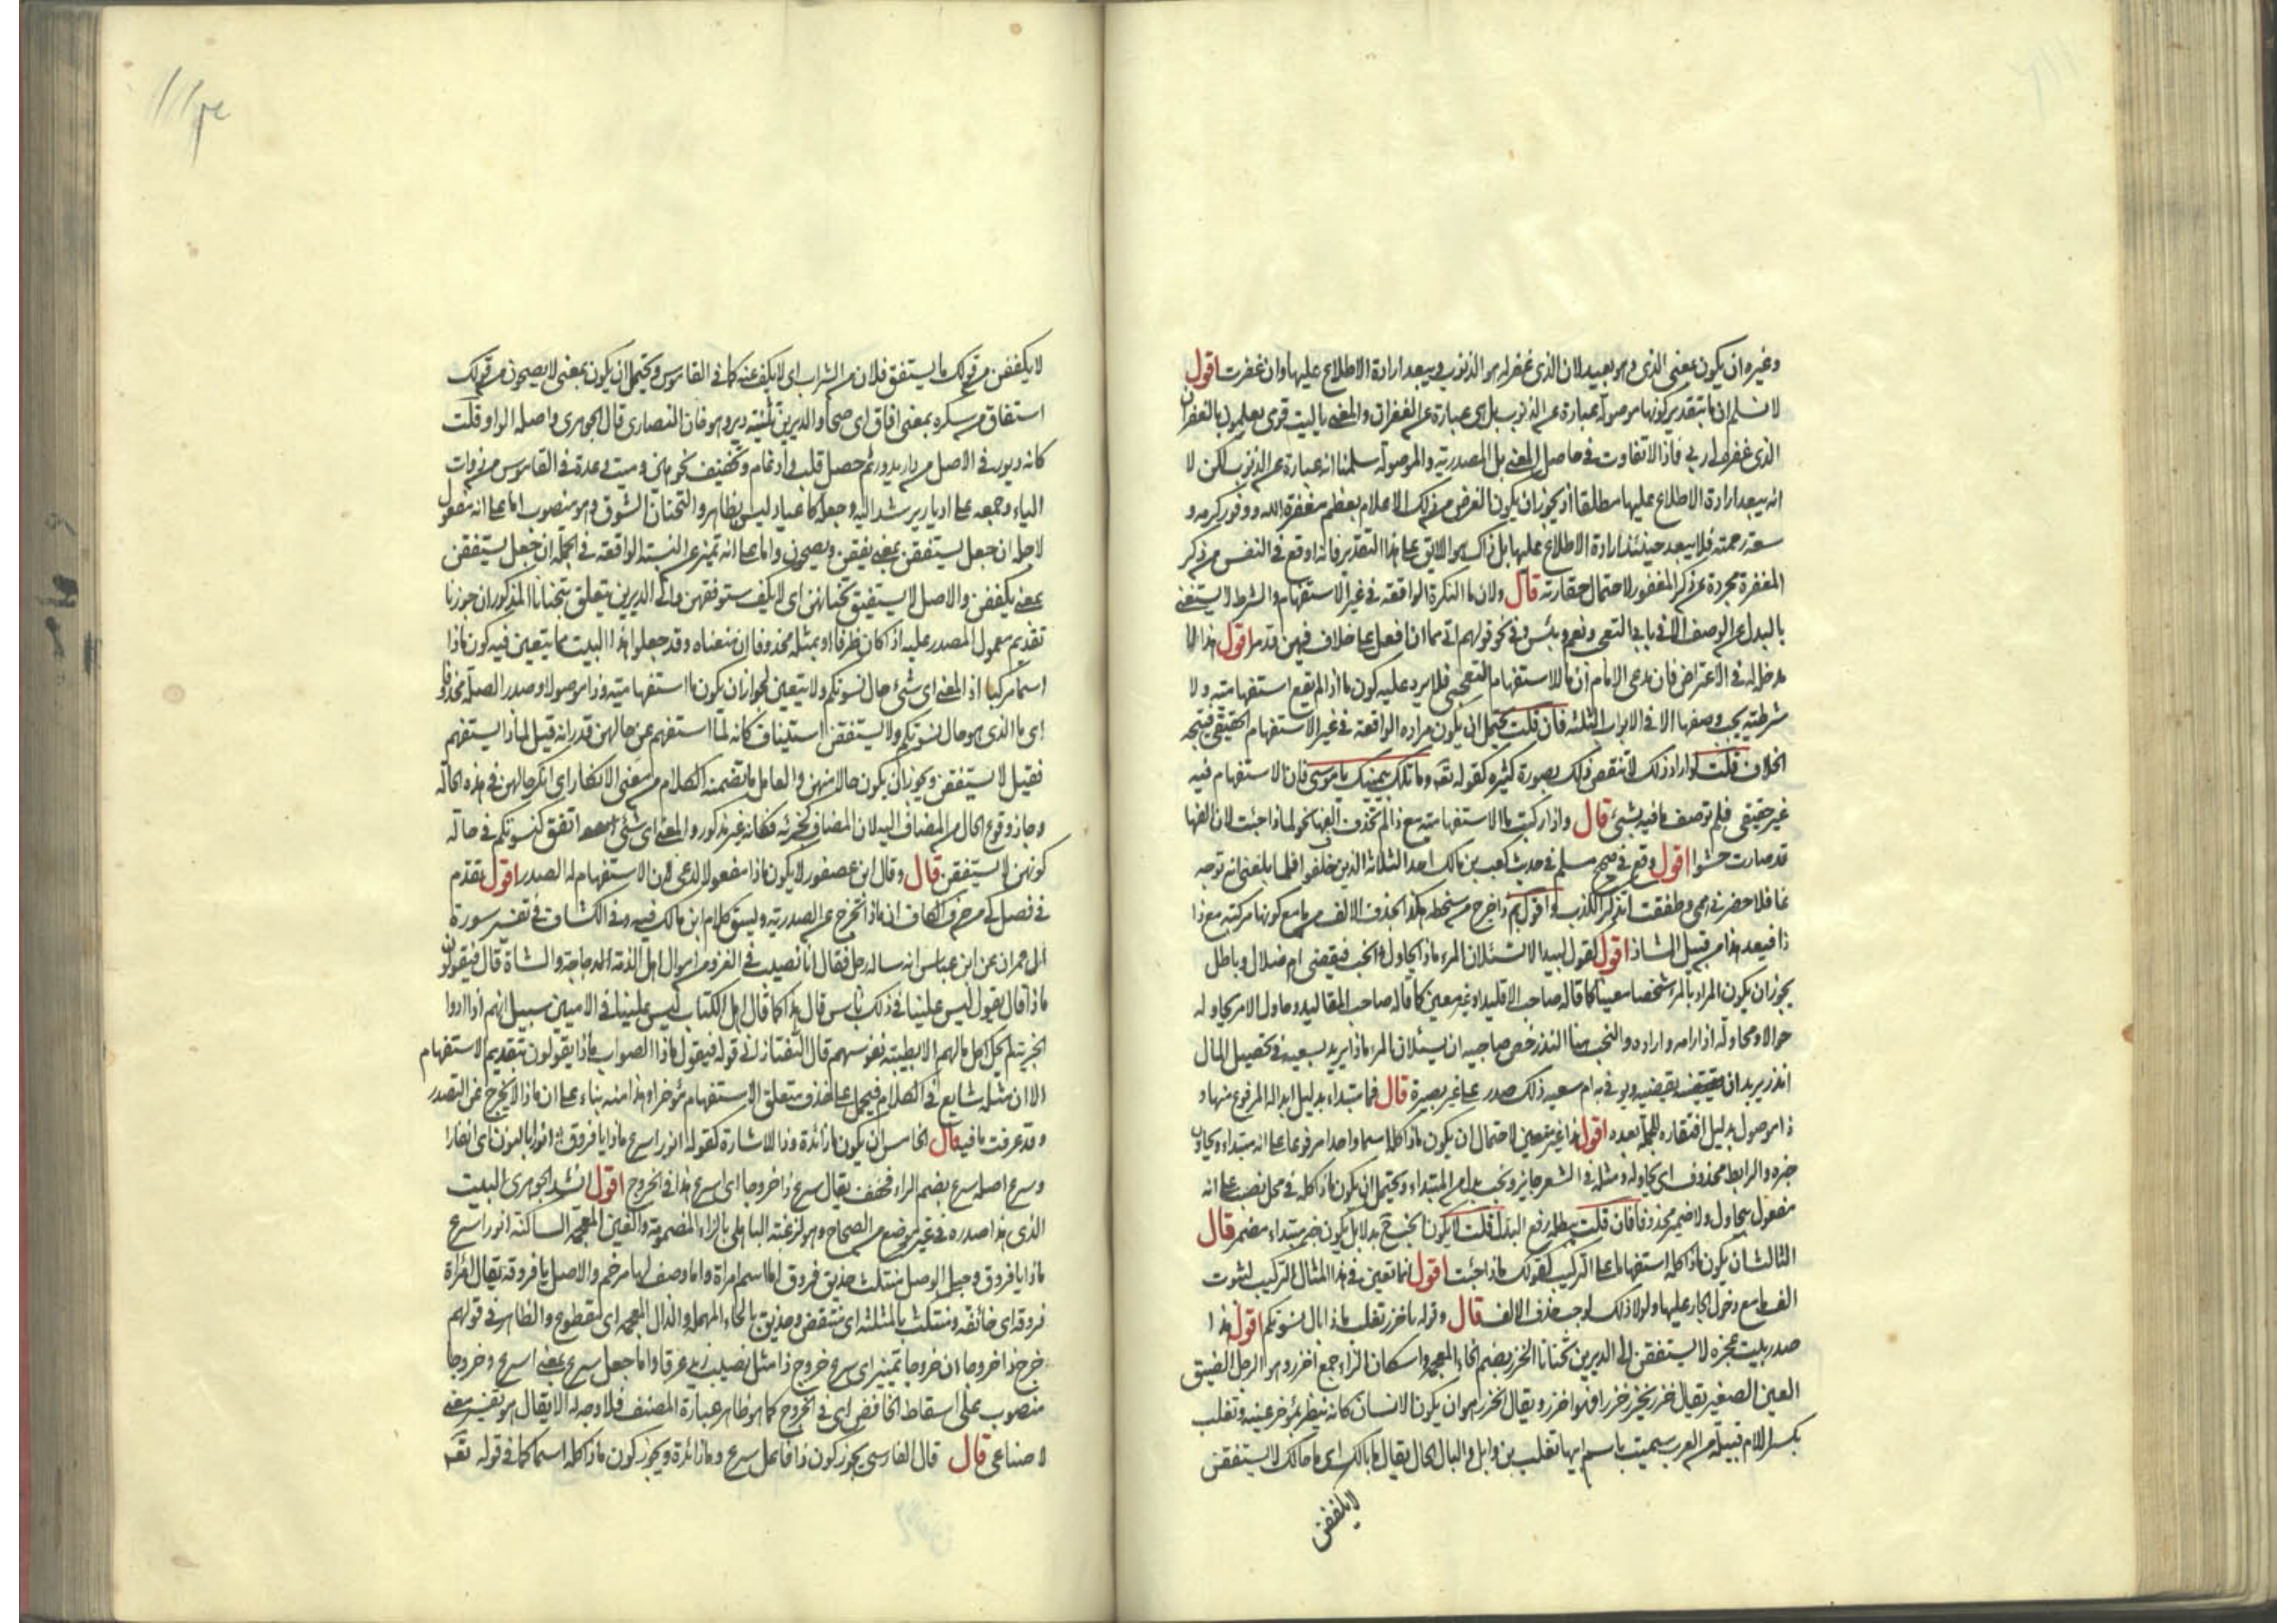 وغيره ان يكون بمعنى الذى وهو بعيد لان الذى غفر له هو الذنوب ويبعد ارادة الاطلاع عليها وان غفرت اقول
لا نسلم ان ما بتقدير كونها موصولة عبارة عن الذنوب بل هى عبارة عن الغفران والمعنى ياليت قومى يعلمون بالغفران
الذى غفره لى ربى فاذا لا تفاوت فى حاصل المعنى بل المصدرية والموصولة سلمنا انه عبارة عن الذنوب لكن لا
انه يبعد ارادة الاطلاع عليها مطلقا اذ يجوز ان يكون الغرض من ذلك الاعلام بعظم مغفرة الله ووفور كرمه و
سعة رحمته فلا يبعد حينئذ ارادة الاطلاع عليها بل ذاك هو الاليق على هذا التقدير فانه اوقع فى النفس من ذكر
المغفرة مجردة عن ذكر المغفور لاحتمال حقارته قال ولان ما النكرة الواقعة فى غير الاستفهام والشرط لا يستغنى
بالبدل عن الوصف الا فى بابى التعجب ونعم وبئس وفى نحو قولهم انى مما ان افعل على خلاف فيهن قد مر اقول هذا لا
مدخل له فى الاعتراض فان مدعى الامام ان ما للاستفهام التعجبى فلا يرد عليه كون ما اذا لم يقع استفهامية ولا
شرطية يجب وصفها الا فى الابواب الثلثة فان قلت يحتمل ان يكون مراده الواقعة فى غير الاستفهام الحقيقى فيتجه
الخلاف قلت لو اراد ذلك لانتقض ذلك بصورة كثيرة كقوله تعـ وما تلك بيمينك يا موسى فان الاستفهام فيه
غير حقيقى فلم توصف ما فيه بشئ قال واذا ركبت ما الاستفهامية مع ذا لم تحذف الفها نحو لماذا جئت لان الفها
قد صارت حشوا اقول وقع فى صحيح مسلم فى حديث كعب بن مالك احد الثلاثة الذين خلفوا فلما بلغنى انه توجه
قافلا حضرنى همى وطفقت اتذكر الكذب واقول بم ذا اخرج من سخطه هكذا بحذف الالف من ما مع كونها مركبة مع ذا
ذا فيعد هذا من قبيل الشاذ اقول لقول لبيد الا تسئلان المرء ماذا يحاول انحب فيقضى ام ضلال وباطل
يجوز ان يكون المراد بالمرء شخصا معينا كما قاله صاحب الاقليد او غير معين كما قاله صاحب المقاليد وحاول الامر يحاوله
حوالا ومحاولة اذا رامه واراده والنحب هنا النذر حض صاحبيه ان يسئلان المرء ماذا يريد بسعيه فى تحصيل المال
انذر يريد ان يقضيه ويوفى به ام سعيه ذلك صدر على غير بصيرة قال فما مبتداء بدليل ابداله المرفوع منها و
ذا موصول بدليل افتقاره للجملة بعده اقول هذا غير متعين لاحتمال ان يكون ماذا كله اسما واحدا مرفوعا على انه مبتداء ويحاول
خبره والرابط محذوف اى يحاوله ومثله فى الشعر جايز ونحب بدل من المبتداء ويحتمل ان يكون ماذا كله فى محل نصب على انه
مفعول يحاول ولا ضمير محذوفا فان قلت يبطله رفع البدل قلت لا يكون انحب ح بدلا بل يكون خبر مبتداء مضمر قال
الثالث ان يكون ماذا كله استفهاما على التركيب كقولك لماذا جئت اقول انما تعين فى هذا المثال التركيب لثبوت
الف ما مع دخول الجار عليها ولولا ذلك لوجب حذف الالف قال وقوله يا خزر تغلب ماذا بال نسوتكم اقول هذا
صدر بيت عجزه لا يستفقن الى الديرين تحنانا الخزر بضم الخاء المعجمة واسكان الزاء جمع اخزر وهو الرجل الضيق
العين الصغير يقال خزر يخزر خزرا فهو اخزر ويقال الخزر هو ان يكون الانسان كانه ينظر بمؤخر عينه وتغلب
بكسر اللام قبيلة من العرب سميت باسم ابيها تغلب بن وايل والبال الحال يقال ما بالك اى ما حالك لا يستفقن
لا يكففن
لا يكففن من قولك ما يستفق فلان من الشراب اى لا يكف عنه كما فى القاموس ويحتمل ان يكون بمعنى لا يصحون من قولك
استفاق من سكره بمعنى افاق اى صحا والديرين تثنية دير وهو خان النصارى قال الجوهرى واصله الواو قلت
كانه ديور فى الاصل من دار يدور ثم حصل قلب وادغام وتخفيف نحو هين وميت وعده فى القاموس من ذوات
الياء وجمعه على اديار يرشد اليه وجعله كاعياد ليس بظاهر والتحنان الشوق وهو منصوب اما على انه مفعول
لاجله ان جعل يستفقن بمعنى يفقن ويصحون واما على انه تمييز عن النسبة الواقعة فى الجملة ان جعل يستفقن
بمعنى يكففن والاصل لا يستفيق تحنانهن اى لا يكف ستوفقهن والى الديرين يتعلق بتحنانا المذكور ان جوزنا
تقديم معمول المصدر عليه اذا كان ظرفا او بمثله محذوفا ان منعناه وقد جعلوا هذا البيت مما يتعين فيه كون ماذا
اسما مركبا اذ المعنى اى شئ حال نسوتكم ولا يتعين لجواز ان يكون ما استفهامية وذا موصولا وصدر الصلة محذوفا
اى ما الذى هو حال نسوتكم ولا يستفقن استيناف كانه لما استفهم عن حالهن قدر انه قيل لماذا يستفهم
فقيل لا يستفقن ويجوز ان يكون حالا منهن والعامل ما تضمنه الكلام من معنى الانكار اى انكر حالهن فى هذه الحالة
وجاز وقوع الحال من المضاف اليه لان المضاف كجزئه فكانه غير مذكور والمعنى اى شئ اتفق لنسوتكم فى حالة
كونهن لا يستفقن قال وقال ابن عصفور لا يكون ماذا مفعولا لدعى لان الاستفهام له الصدر اقول تقدم
فى فصل كى من حرف الكاف ان ماذا تخرج عن الصدرية وسبق كلام ابن مالك فيه وفى الكشاف فى تفسير سورة
آل عمران عن ابن عباس انه ساله رجل فقال انا نصيب فى الغزو من اموال اهل الذمة الدجاجة والشاة قال فيقولون
ماذا قال يقول ليس علينا فى ذلك باس قال هذا كما قال اهل الكتاب ليس علينا فى الاميين سبيل انهم اذا ادوا
الجزية لم يحل اكل مالهم الا بطيبة نفوسهم قال التفتازانى قوله فيقول ماذا الصواب ماذا يقولون بتقديم الاستفهام
الا ان مثله شايع فى الكلام فيحمل على حذف متعلق الاستفهام مؤخرا وهذا منه بناء على ان ماذا لا يخرج عن التصدر
وقد عرفت ما فيه قال الخامس ان يكون ما زائدة وذا للاشارة كقوله انورا سرع ماذا يا فروق انورا بالنون اى انفارا
وسرع اصله سرع بضم الراء فخفف يقال سرع ذا خروجا اى اسرع هذا فى الخروج اقول انشد الجوهرى البيت
الذى هذا صدره فى غير موضع من الصحاح وهو لزغبة الباهلى بالزاء المضمومة والغين المعجمة الساكنة انورا سرع
ماذا يا فروق وحبل الوصل منتكث حذيق فروق اما اسم امراة واما وصف لها مرخم والاصل يا فروقة يقال امراة
فروقة اى خائفة ومنتكث بالمثلثة اى منتقض وحذيق بالحاء المهملة والذال المعجمة اى مقطوع والظاهر فى قولهم
سرع ذا خروجا ان خروجا تمييز اى سرع خروج ذا مثل تصبب زيد عرقا واما جعل سرع بمعنى اسرع وخروجا
منصوب على اسقاط الخافض اى فى الخروج كما هو ظاهر عبارة المصنف فلا وجه له الا يقال هو تفسير معنى
لا صناعى قال قال الفارسى يجوز كون ذا فاعل سرع وما زائدة ويجوز كون ماذا كله اسما كما فى قوله تعـ